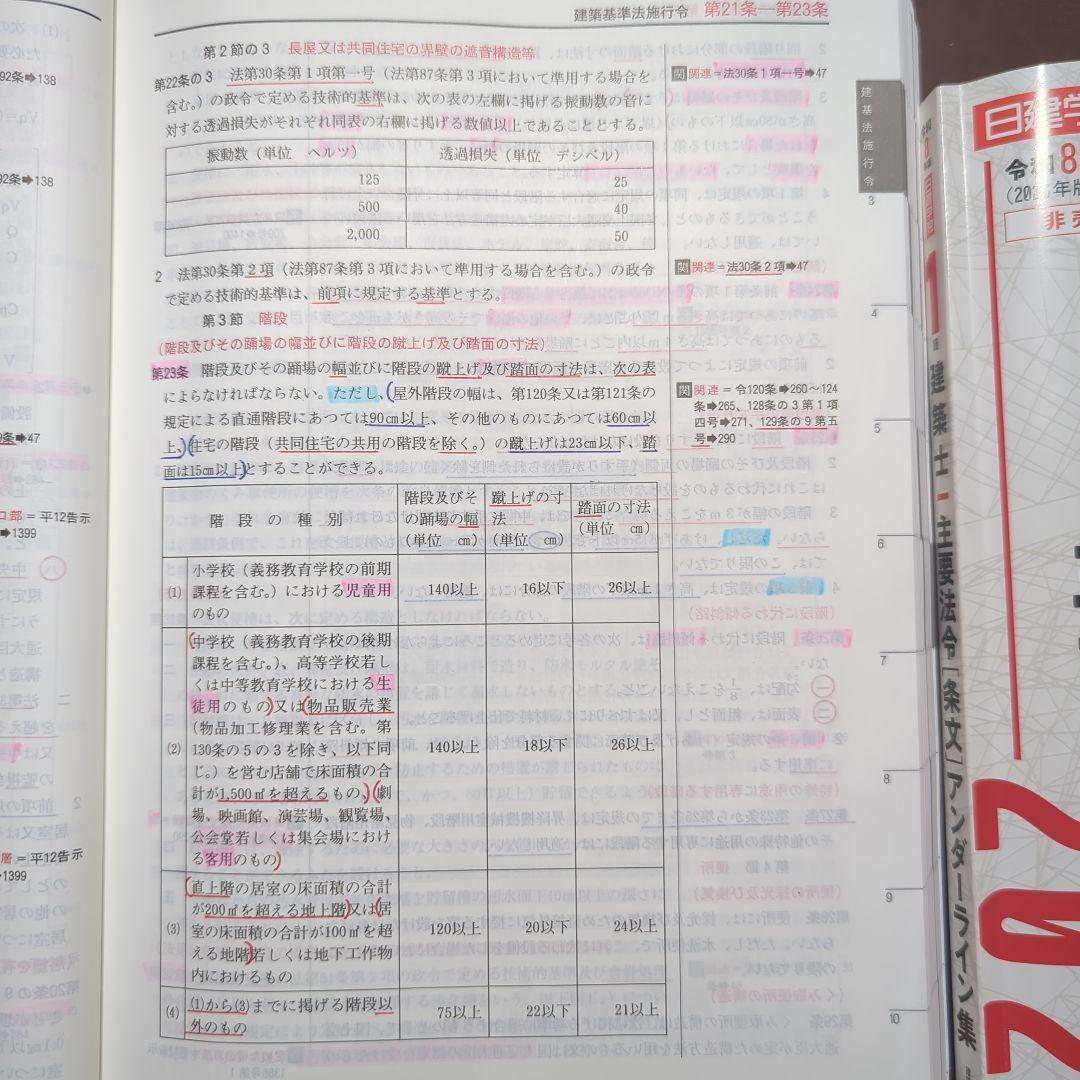 建築基準法施行令 第21条―第23条
第2節の3 長屋又は共同住宅の界壁の遮音構造等
第22条の3 法第30条第1項第一号（法第87条第3項において準用する場合を
含む。）の政令で定める技術的基準は、次の表の左欄に掲げる振動数の音に
対する透過損失がそれぞれ同表の右欄に掲げる数値以上であることとする。
関 関連＝法30条1項一号➡47
振動数（単位 ヘルツ） 透過損失（単位 デシベル）
125 25
500 40
2,000 50
2 法第30条第2項（法第87条第3項において準用する場合を含む。）の政令
で定める技術的基準は、前項に規定する基準とする。
関 関連＝法30条2項➡47
第3節 階段
（階段及びその踊場の幅並びに階段の蹴上げ及び踏面の寸法）
第23条 階段及びその踊場の幅並びに階段の蹴上げ及び踏面の寸法は、次の表
によらなければならない。ただし、屋外階段の幅は、第120条又は第121条の
規定による直通階段にあつては90㎝以上、その他のものにあつては60㎝以
上、住宅の階段（共同住宅の共用の階段を除く。）の蹴上げは23㎝以下、踏
面は15㎝以上とすることができる。
関 関連＝令120条➡260～124
条➡265、128条の3第1項
四号➡271、129条の9第五
号➡290
階段の種別 階段及びその踊場の幅（単位 ㎝） 蹴上げの寸法（単位 ㎝） 踏面の寸法（単位 ㎝）
(1) 小学校（義務教育学校の前期
課程を含む。）における児童用
のもの 140以上 16以下 26以上
(2) 中学校（義務教育学校の後期
課程を含む。）、高等学校若し
くは中等教育学校における生
徒用のもの又は物品販売業
（物品加工修理業を含む。第
130条の5の3を除き、以下同
じ。）を営む店舗で床面積の合
計が1,500㎡を超えるもの、劇
場、映画館、演芸場、観覧場、
公会堂若しくは集会場におけ
る客用のもの 140以上 18以下 26以上
(3) 直上階の居室の床面積の合計
が200㎡を超える地上階又は居
室の床面積の合計が100㎡を超
える地階若しくは地下工作物
内におけるもの 120以上 20以下 24以上
(4) (1)から(3)までに掲げる階段以
外のもの 75以上 22以下 21以上
建基法施行令
3
4
5
6
7
8
9
10
92条➡138
92条➡138
条➡47
口部＝平12告示
➡1399
層＝平12告示
➡1399
日建学
令和8
年版
非売
1
建築士 主要法令「条文」アンダーライン集